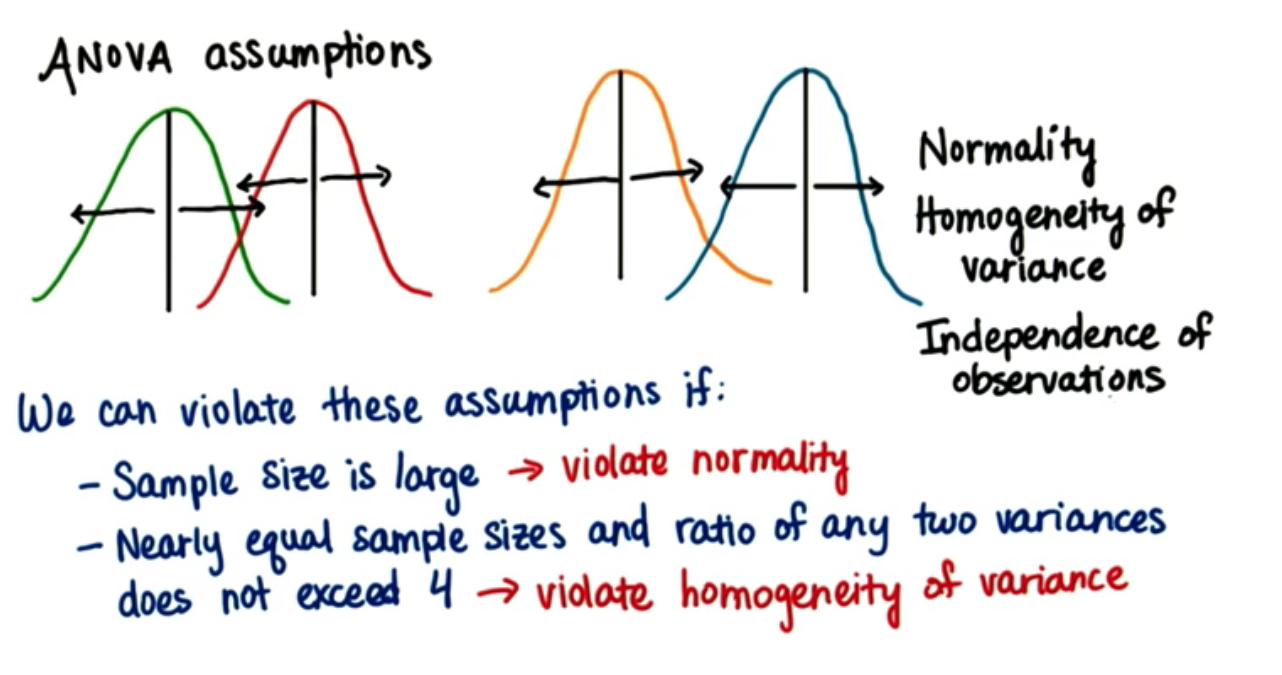 ANOVA assumptions
Normality
Homogeneity of
variance
Independence of
observations
We can violate these assumptions if:
- Sample size is large → violate normality
- Nearly equal sample sizes and ratio of any two variances
does not exceed 4 → violate homogeneity of variance